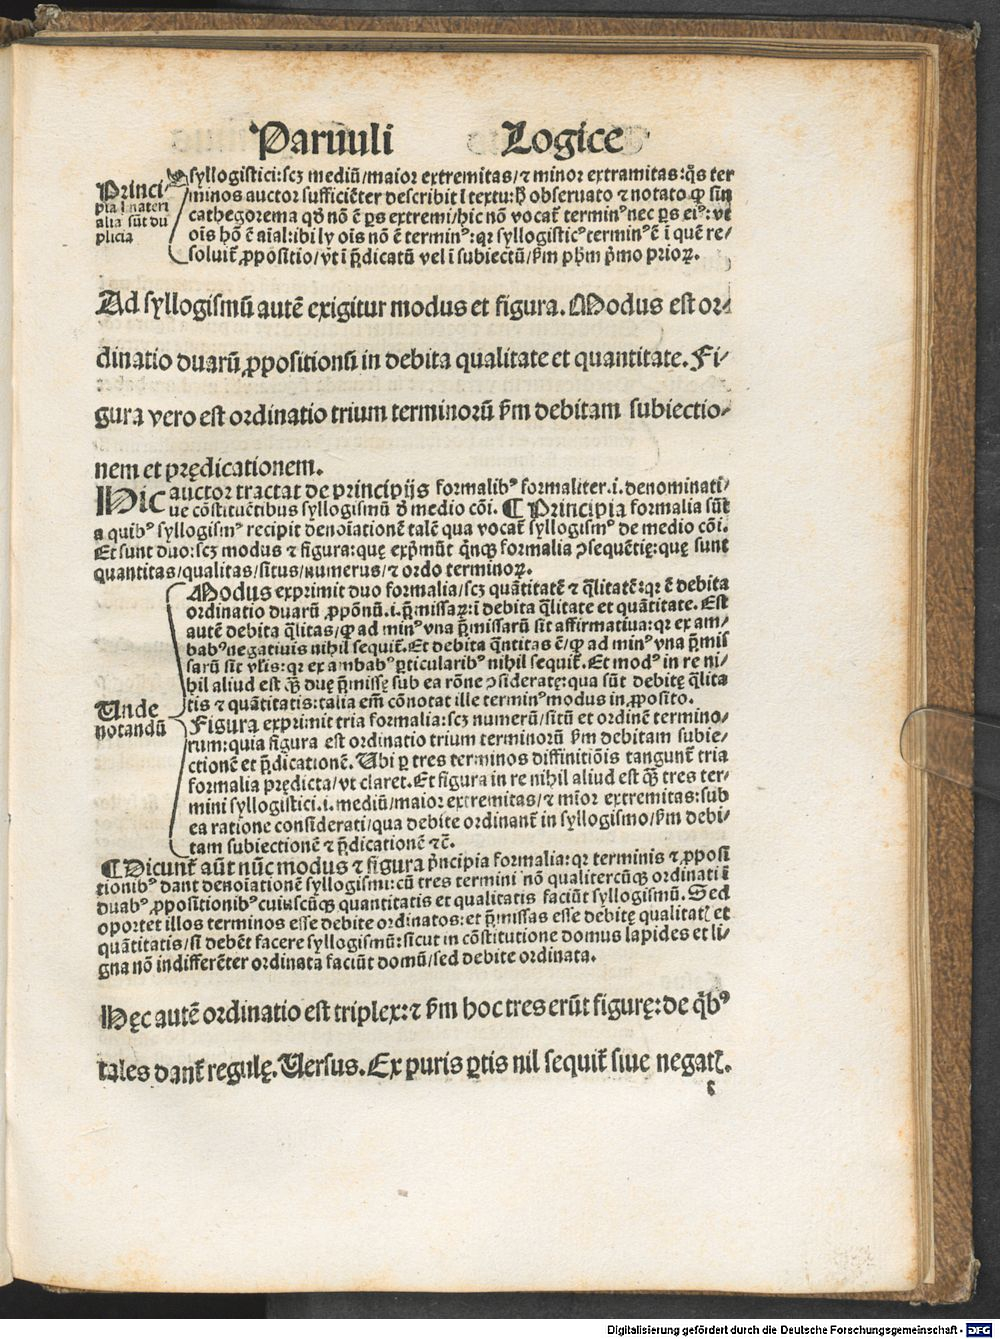 Paruuli Logice
Princi/
pia materi
alia sũt du
plicia
syllogistici:scʒ mediũ/maior extremitas/⁊ minor extramitas:q̃s ter
minos auctor sufficiẽter describit ĩ textu:ꝙ̃ obseruato ⁊ notato ꝙ sin
cathegorema qd̃ nõ ẽ ꝑs extremi/hic nõ vocat᷑ terminꝰ nec ꝑs eiꝰ: vt
oĩs hõ ẽ aĩal:ibi ly oĩs nõ ẽ terminꝰ:qꝛ syllogisticꝰ terminꝰ ẽ ĩ quẽ re/
soluit᷑ ꝓpositio/vt ĩ p̃dicatũ vel ĩ subiectũ/ẜm ph̃m p̃mo prioꝝ.
Ad syllogismũ autẽ exigitur modus et figura. Modus est or/
dinatio duarũ ꝓpositionũ in debita qualitate et quantitate. Fi/
gura vero est ordinatio trium terminorũ ẜm debitam subiectio/
nem et prędicationem.
Hic auctor tractat de principijs formalibꝰ formaliter.i.denominati/
ue cõstituẽtibus syllogismũ d̃ medio cõi. ¶ Principia formalia sũt
a quibꝰ syllogismꝰ recipit denoĩationẽ talẽ qua vocat᷑ syllogismꝰ de medio cõi.
Et sunt duo:scʒ modus ⁊ figura:quę exp̃mũt q̃nqꝫ formalia ꝯsequẽtię:quę sunt
quantitas/qualitas/situs/numerus/⁊ ordo terminoꝝ.
Modus exprimit duo formalia/scʒ quãtitatẽ ⁊ q̃litatẽ:qꝛ ẽ debita
ordinatio duarũ ꝓpõnũ.i.p̃missaꝝ:ĩ debita q̃litate et quãtitate. Est
autẽ debita q̃litas/ꝙ ad minꝰ vna p̃missarũ sit affirmatiua:qꝛ ex am/
babꝰ negatiuis nihil sequit᷑.Et debita q̃ntitas ẽ/ꝙ ad minꝰ vna p̃mis
sarũ sit vl̃is:qꝛ ex ambabꝰ ꝑticularibꝰ nihil sequit᷑. Et modꝰ in re ni/
hil aliud est q̃ꝫ duę p̃missę sub ea rõne ꝯsideratę:qua sũt debitę q̃lita
tis ⁊ quãtitatis:talia em̃ cõnotat ille terminꝰ modus in ꝓposito.
Unde
notandũ
Figura exprimit tria formalia:scʒ numerũ/sitũ et ordinẽ termino/
rum:quia figura est ordinatio trium terminorũ ẜm debitam subie/
ctionẽ et p̃dicationẽ. Ubi ꝑ tres terminos diffinitiõis tangunt᷑ tria
formalia prędicta/vt claret. Et figura in re nihil aliud est q̃ꝫ tres ter/
mini syllogistici.i.mediũ/maior extremitas/⁊ mĩor extremitas:sub
ea ratione considerati/qua debite ordinant᷑ in syllogismo/ẜm debi/
tam subiectionẽ ⁊ p̃dicationẽ ⁊c̃.
¶ Dicunt᷑ aũt nũc modus ⁊ figura p̃ncipia formalia:qꝛ terminis ⁊ ꝓposi
tionibꝰ dant denoĩationẽ syllogismi:cũ tres termini nõ qualitercũqꝫ ordinati ĩ
duabꝰ ꝓpositionibꝰ cuiuscũqꝫ quantitatis et qualitatis faciũt syllogismũ. Sed
oportet illos terminos esse debite ordinatos:et p̃missas esse debitę qualitatꝭ et
quãtitatis/si debẽt facere syllogismũ:sicut in cõstitutione domus lapides et li/
gna nõ indifferẽter ordinata faciũt domũ/sed debite ordinata.
Hęc autẽ ordinatio est triplex:⁊ ẜm hoc tres erũt figurę:de q̃bꝰ
tales dant᷑ regulę. Versus. Ex puris ꝑtis nil sequit᷑ siue negatꝭ.
Digitalisierung gefördert durch die Deutsche Forschungsgemeinschaft - DFG